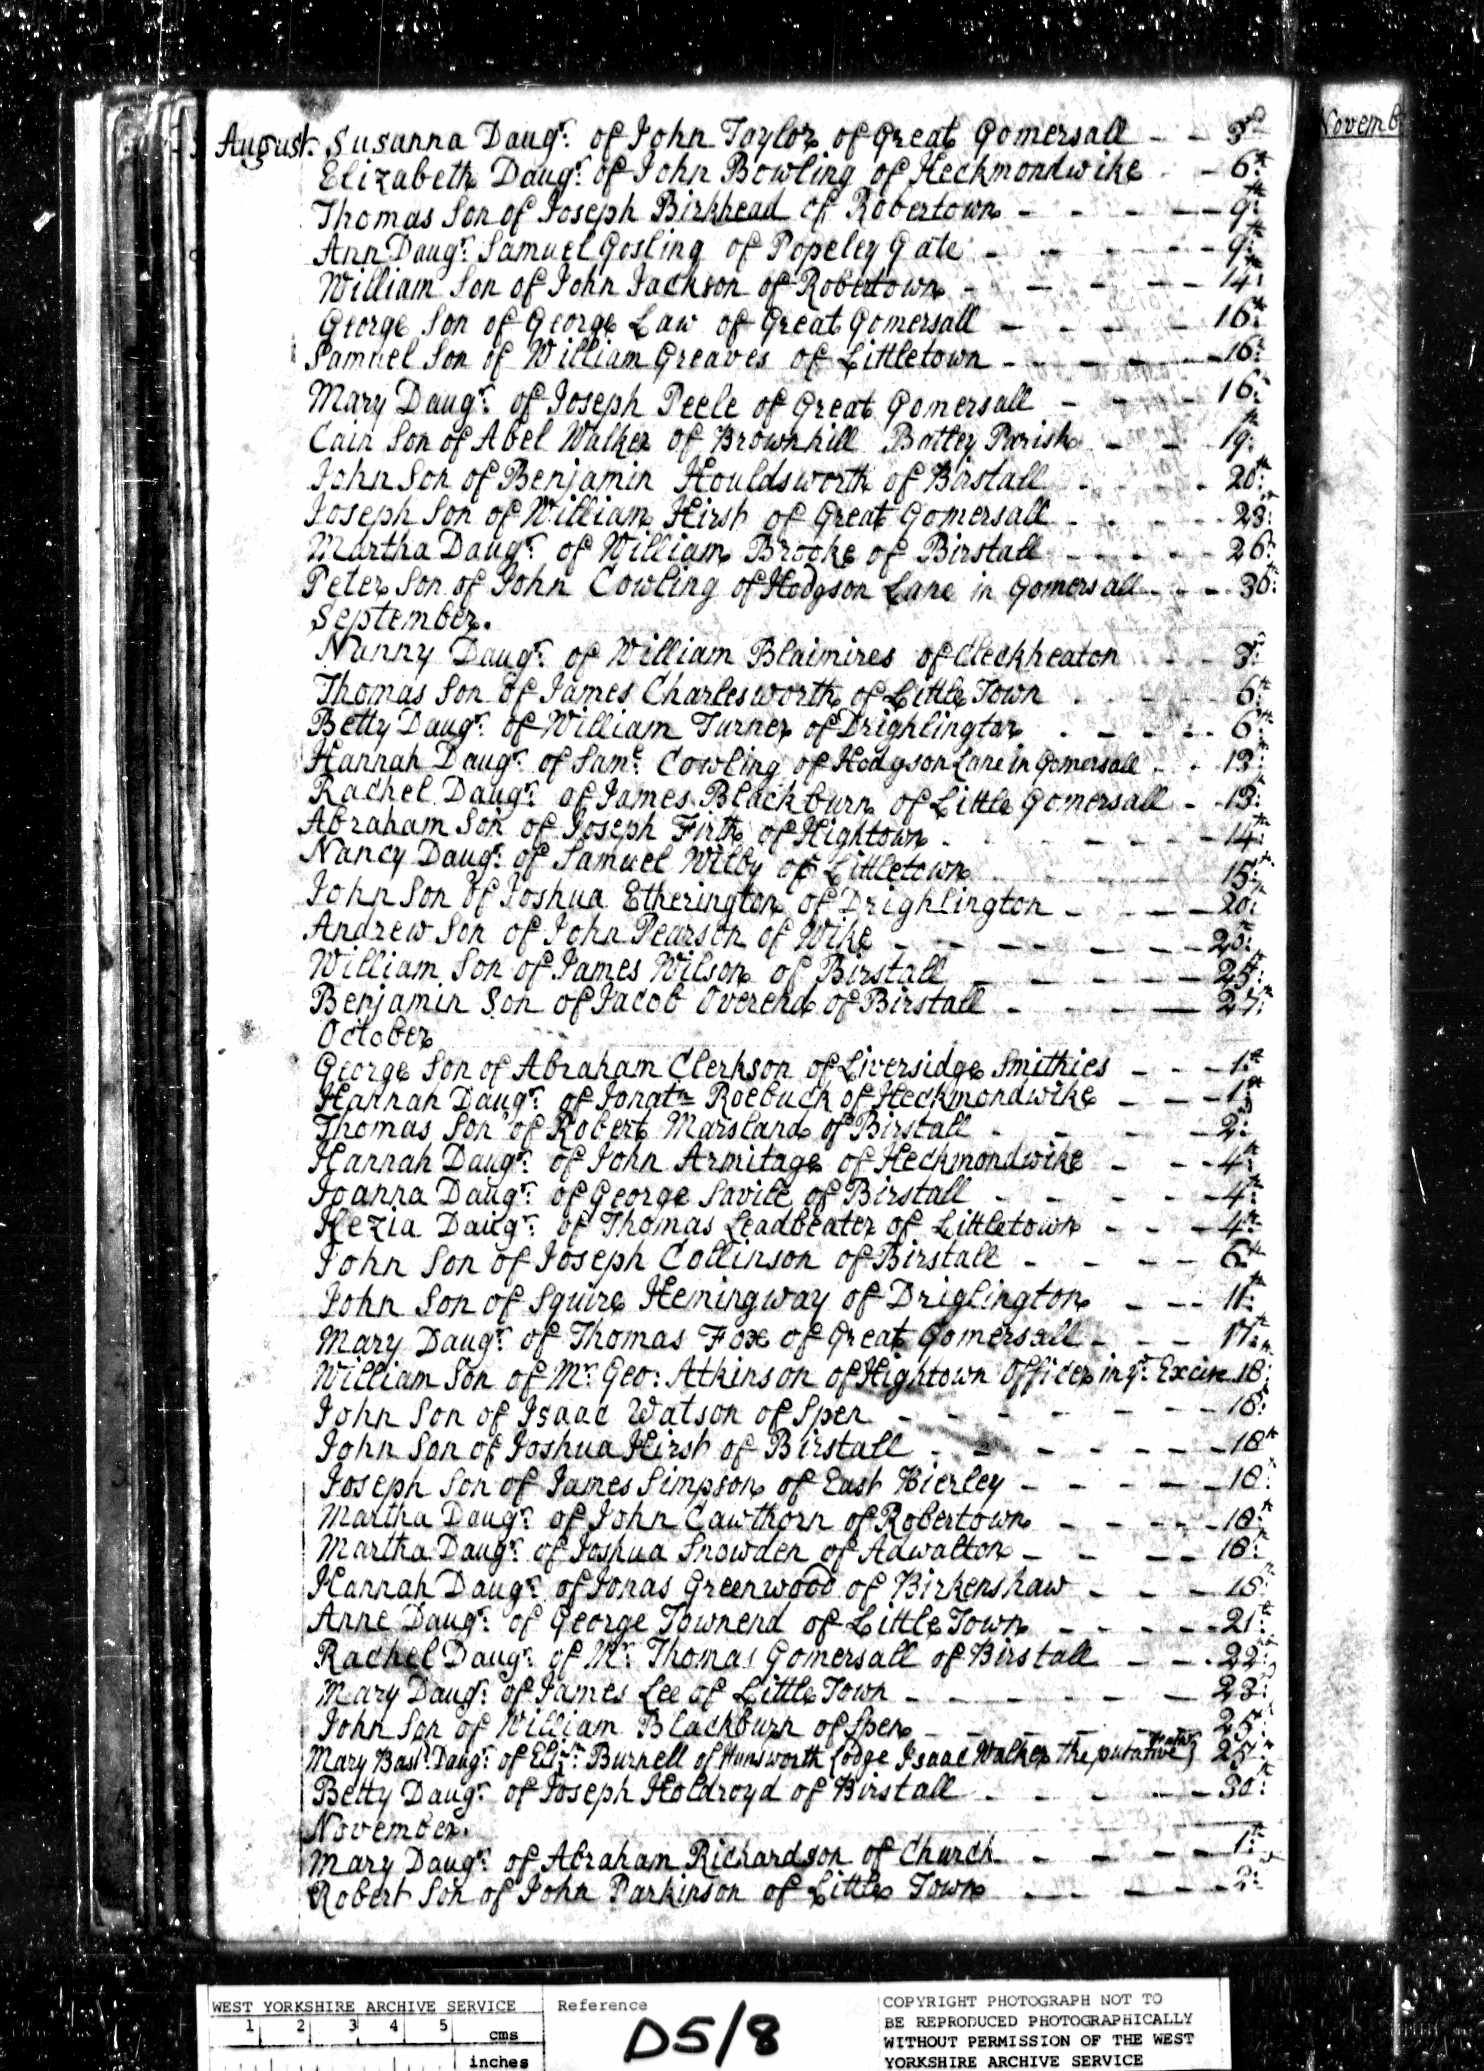 August. Susanna Daugr. of John Taylor of Great Gomersall - - 3d
Elizabeth Daugr. of John Bowling of Heckmondwike - - 6th
Thomas Son of Joseph Birkhead of Robertown - - - - - 9th
Ann Daugr. Samuel Gosling of Popeley Gate - - - - - 9th
William Son of John Jackson of Robertown - - - - - 14th
George Son of George Law of Great Gomersall - - - - 16th
Samuel Son of William Greaves of Littletown - - - - - 16th
Mary Daugr. of Joseph Peele of Great Gomersall - - - - 16th
Cain Son of Abel Walker of Brownhill Batley Parish - - 19th
John Son of Benjamin Houldsworth of Birstall - - - - 20th
Joseph Son of William Hirst of Great Gomersall - - - - 23
Martha Daugr. of William Brooke of Birstall - - - - - 26th
Peter Son of John Cowling of Hodgson Lane in Gomersall - - - 30th
September.
Nanny Daugr. of William Blaimires of Cleckheaton - - 3d
Thomas Son of James Charlesworth of Little Town - - - - 6th
Betty Daugr. of William Turner of Drighlington - - - - 6th
Hannah Daugr. of Saml. Cowling of Hodgson Lane in Gomersall - - 13th
Rachel Daugr. of James Blackburn of Little Gomersall - - 13th
Abraham Son of Joseph Firth of Hightown - - - - - 14th
Nancy Daugr. of Samuel Wilby of Littletown - - - 15th
John Son of Joshua Etherington of Drighlington - - - - 20th
Andrew Son of John Pearson of Wike - - - - - - - 25th
William Son of James Wilson of Birstall - - - - - 25th
Benjamin Son of Jacob Overend of Birstall - - - - 27th
October
George Son of Abraham Clerkson of Liversidge Smithies - - - 1st
Hannah Daugr. of Jonatn. Roebuck of Heckmondwike - - - 1st
Thomas Son of Robert Marsland of Birstall - - - - - 2d
Hannah Daugr. of John Armitage of Heckmondwike - - - 4th
Joanna Daugr. of George Savile of Birstall - - - - - 4th
Kezia Daugr. of Thomas Leadbeater of Littletown - - - 4th
John Son of Joseph Collinson of Birstall - - - - 6th
John Son of Squire Hemingway of Driglington - - - 11th
Mary Daugr. of Thomas Fox of Great Gomersall - - - 17th
William Son of Mr. Geo: Atkinson of Hightown Officer in ye. Excise 18th
John Son of Isaac Watson of Spen - - - - - - - 18th
John Son of Joshua Hirst of Birstall - - - - - - 18th
Joseph Son of James Simpson of East Bierley - - - - - 18th
Martha Daugr. of John Cawthorn of Robertown - - - - - 18th
Martha Daugr. of Joshua Snowden of Adwalton - - - - 18th
Hannah Daugr. of Jonas Greenwood of Birkenshaw - - - 18th
Anne Daugr. of George Townend of Little Town - - - - - 21st
Rachel Daugr. of Mr. Thomas Gomersall of Birstall - - - 22d
Mary Daugr. of James Lee of Little Town - - - - - - 23d
John Son of William Blackburn of Spen - - - - - 25th
Mary Bast. Daugr. of Eliz. Burnell of Hunsworth Lodge Isaac Walker the putative Father 25th
Betty Daugr. of Joseph Holdroyd of Birstall - - - - - 30th
November.
Mary Daugr. of Abraham Richardson of Church - - - - 1st
Robert Son of John Parkinson of Little Town - - - - 2d
Novemb
WEST YORKSHIRE ARCHIVE SERVICE
1 2 3 4 5
cms
inches
Reference
D5/8
COPYRIGHT PHOTOGRAPH NOT TO
BE REPRODUCED PHOTOGRAPHICALLY
WITHOUT PERMISSION OF THE WEST
YORKSHIRE ARCHIVE SERVICE